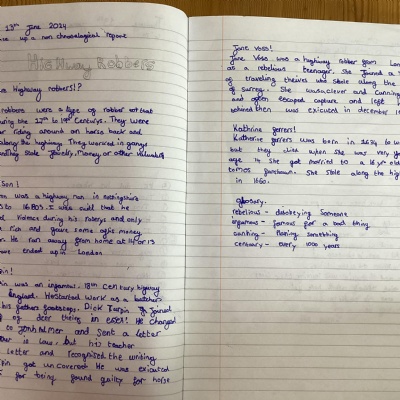 13th June 2024
up a non chronological report
Highway Robbers
Highway robbers!?
robbers were a type of robber not that
during the 17th to 19th centurys. They were
for riding around on horse back and
along the highway. They worked in gangs
stealing Jewels, Money or other valuables
Son!
was a highway man in nottingshire
to 1680s. I was said that he
during his roberys and only
rich and gave some of his money
He ran away from home at 14 or 13
ended up in London
was an infamous 18th Century highway
England. He started work as a butcher
his fathers footsteps. Dick Turpin joined
of deer theivs in essex! He changed
to John Palmer and sent a letter
in law, but his teacher
letter and recognised the writing
got uncovered He was exicuted
for being found guilty for horse
Jane Voss!
Jane Voss was a highway robber from
as a rebelious teenager. She joined a
of traveling theives who stole along the
of surrey. She was clever and cunning
and often escaped capture and left
behind then was exicuted in december
Kathrine ferrers!
Katherine ferrers was born in 1634 to
but they died when she was very
age 14 she got married to a 16 yr old
tomas fanshawn. She stole along the high
in 1660.
glosory.
rebelious - disobeying someone
infamous - famous for a bad thing
cunning - planing something
century - every 1000 years